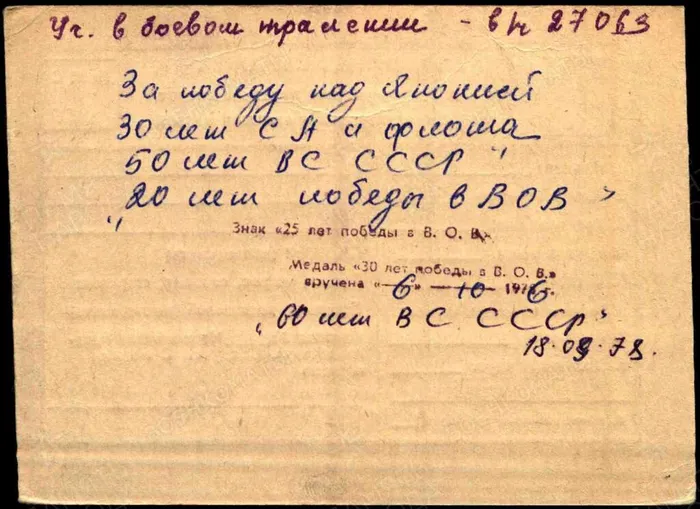 Уч. в боевом тралении - в/ч 27063
За победу над Японией
30 лет СА и флота
50 лет ВС СССР"
„20 лет победы в ВОВ"
Знак «25 лет победы в В. О. В.»
Медаль «30 лет победы в В. О. В.»
вручена «6» 10 1976 г.
„60 лет ВС СССР"
18.09.78.